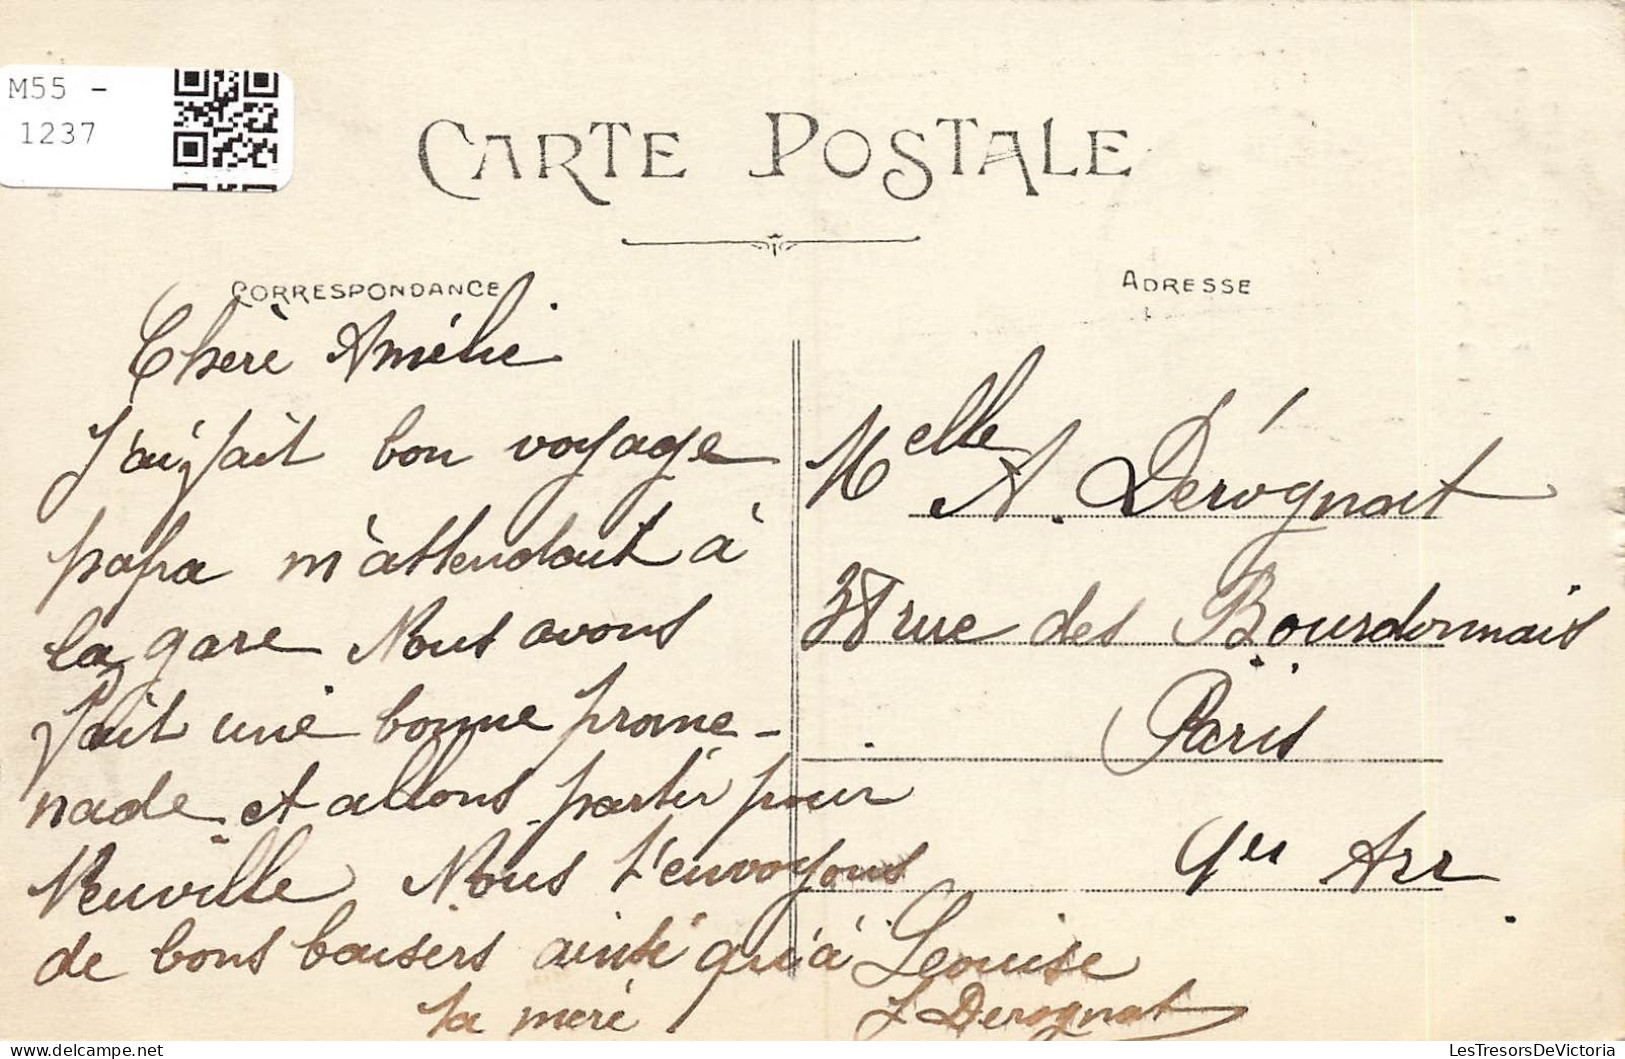 M55 -
1237
CARTE POSTALE
CORRESPONDANCE
ADRESSE
Chère Amélie
J'ai fait bon voyage
papa m'attendait à
la gare Nous avons
fait une bonne prome-
nade et allons partir pour
Neuville Nous t'envoyons
de bons baisers ainsi qu'à Louise
ta mère
L Derognat
Melle A. Dérognat
38 rue des Bourdonnais
Paris
1er Arr
LesTresorsDeVictoria